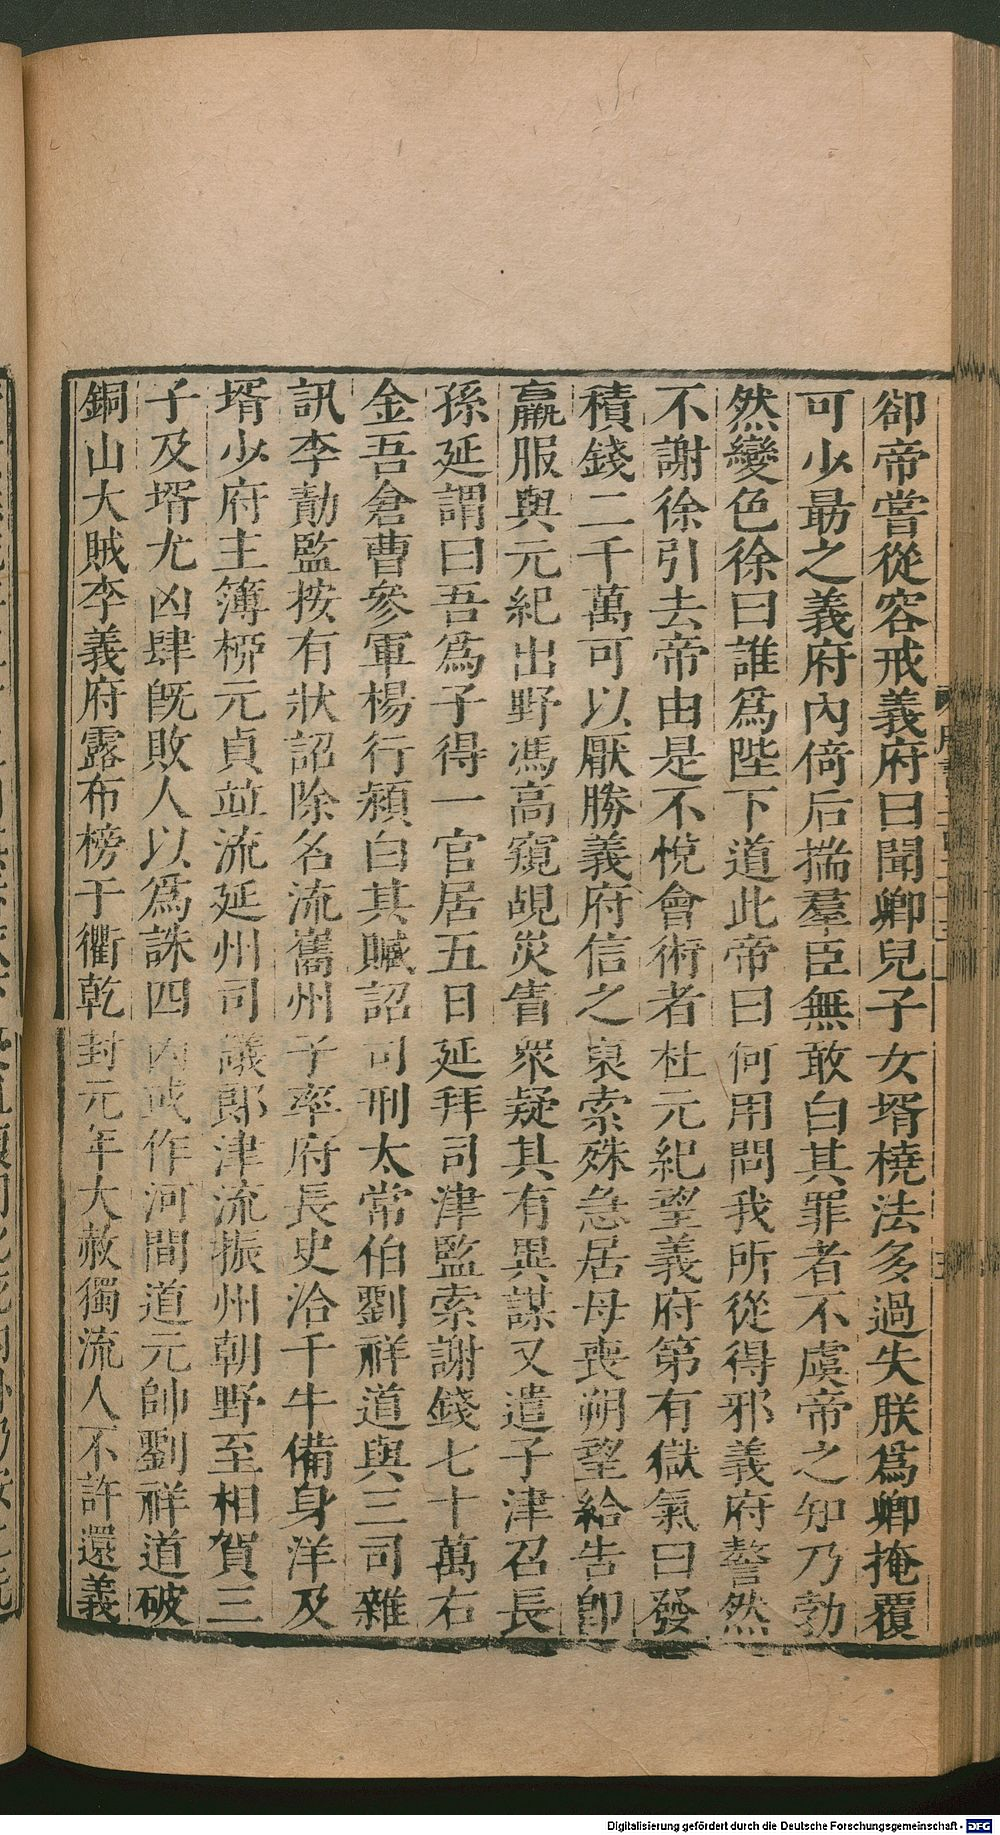 卻帝嘗從容戒義府曰聞卿兒子女壻橈法多過失朕爲卿掩覆
可少勗之義府內倚后揣羣臣無敢白其罪者不虞帝之知乃勃
然變色徐曰誰爲陛下道此帝曰何用問我所從得邪義府謷然
不謝徐引去帝由是不悅會術者杜元紀望義府第有獄氣曰發
積錢二千萬可以厭勝義府信之裒索殊急居母喪朔望給告卽
羸服與元紀出野馮高窺覘災眚衆疑其有異謀又遣子津召長
孫延謂曰吾爲子得一官居五日延拜司津監索謝錢七十萬右
金吾倉曹參軍楊行穎白其贓詔司刑太常伯劉祥道與三司雜
訊李勣監按有狀詔除名流巂州子率府長史洽千牛備身洋及
壻少府主簿桺元貞竝流延州司議郎津流振州朝野至相賀三
子及壻尤凶肆旣敗人以爲誅四凶或作河間道元帥劉祥道破
銅山大賊李義府露布榜于衢乾封元年大赦獨流人不許還義
Digitalisierung gefördert durch die Deutsche Forschungsgemeinschaft - DFG